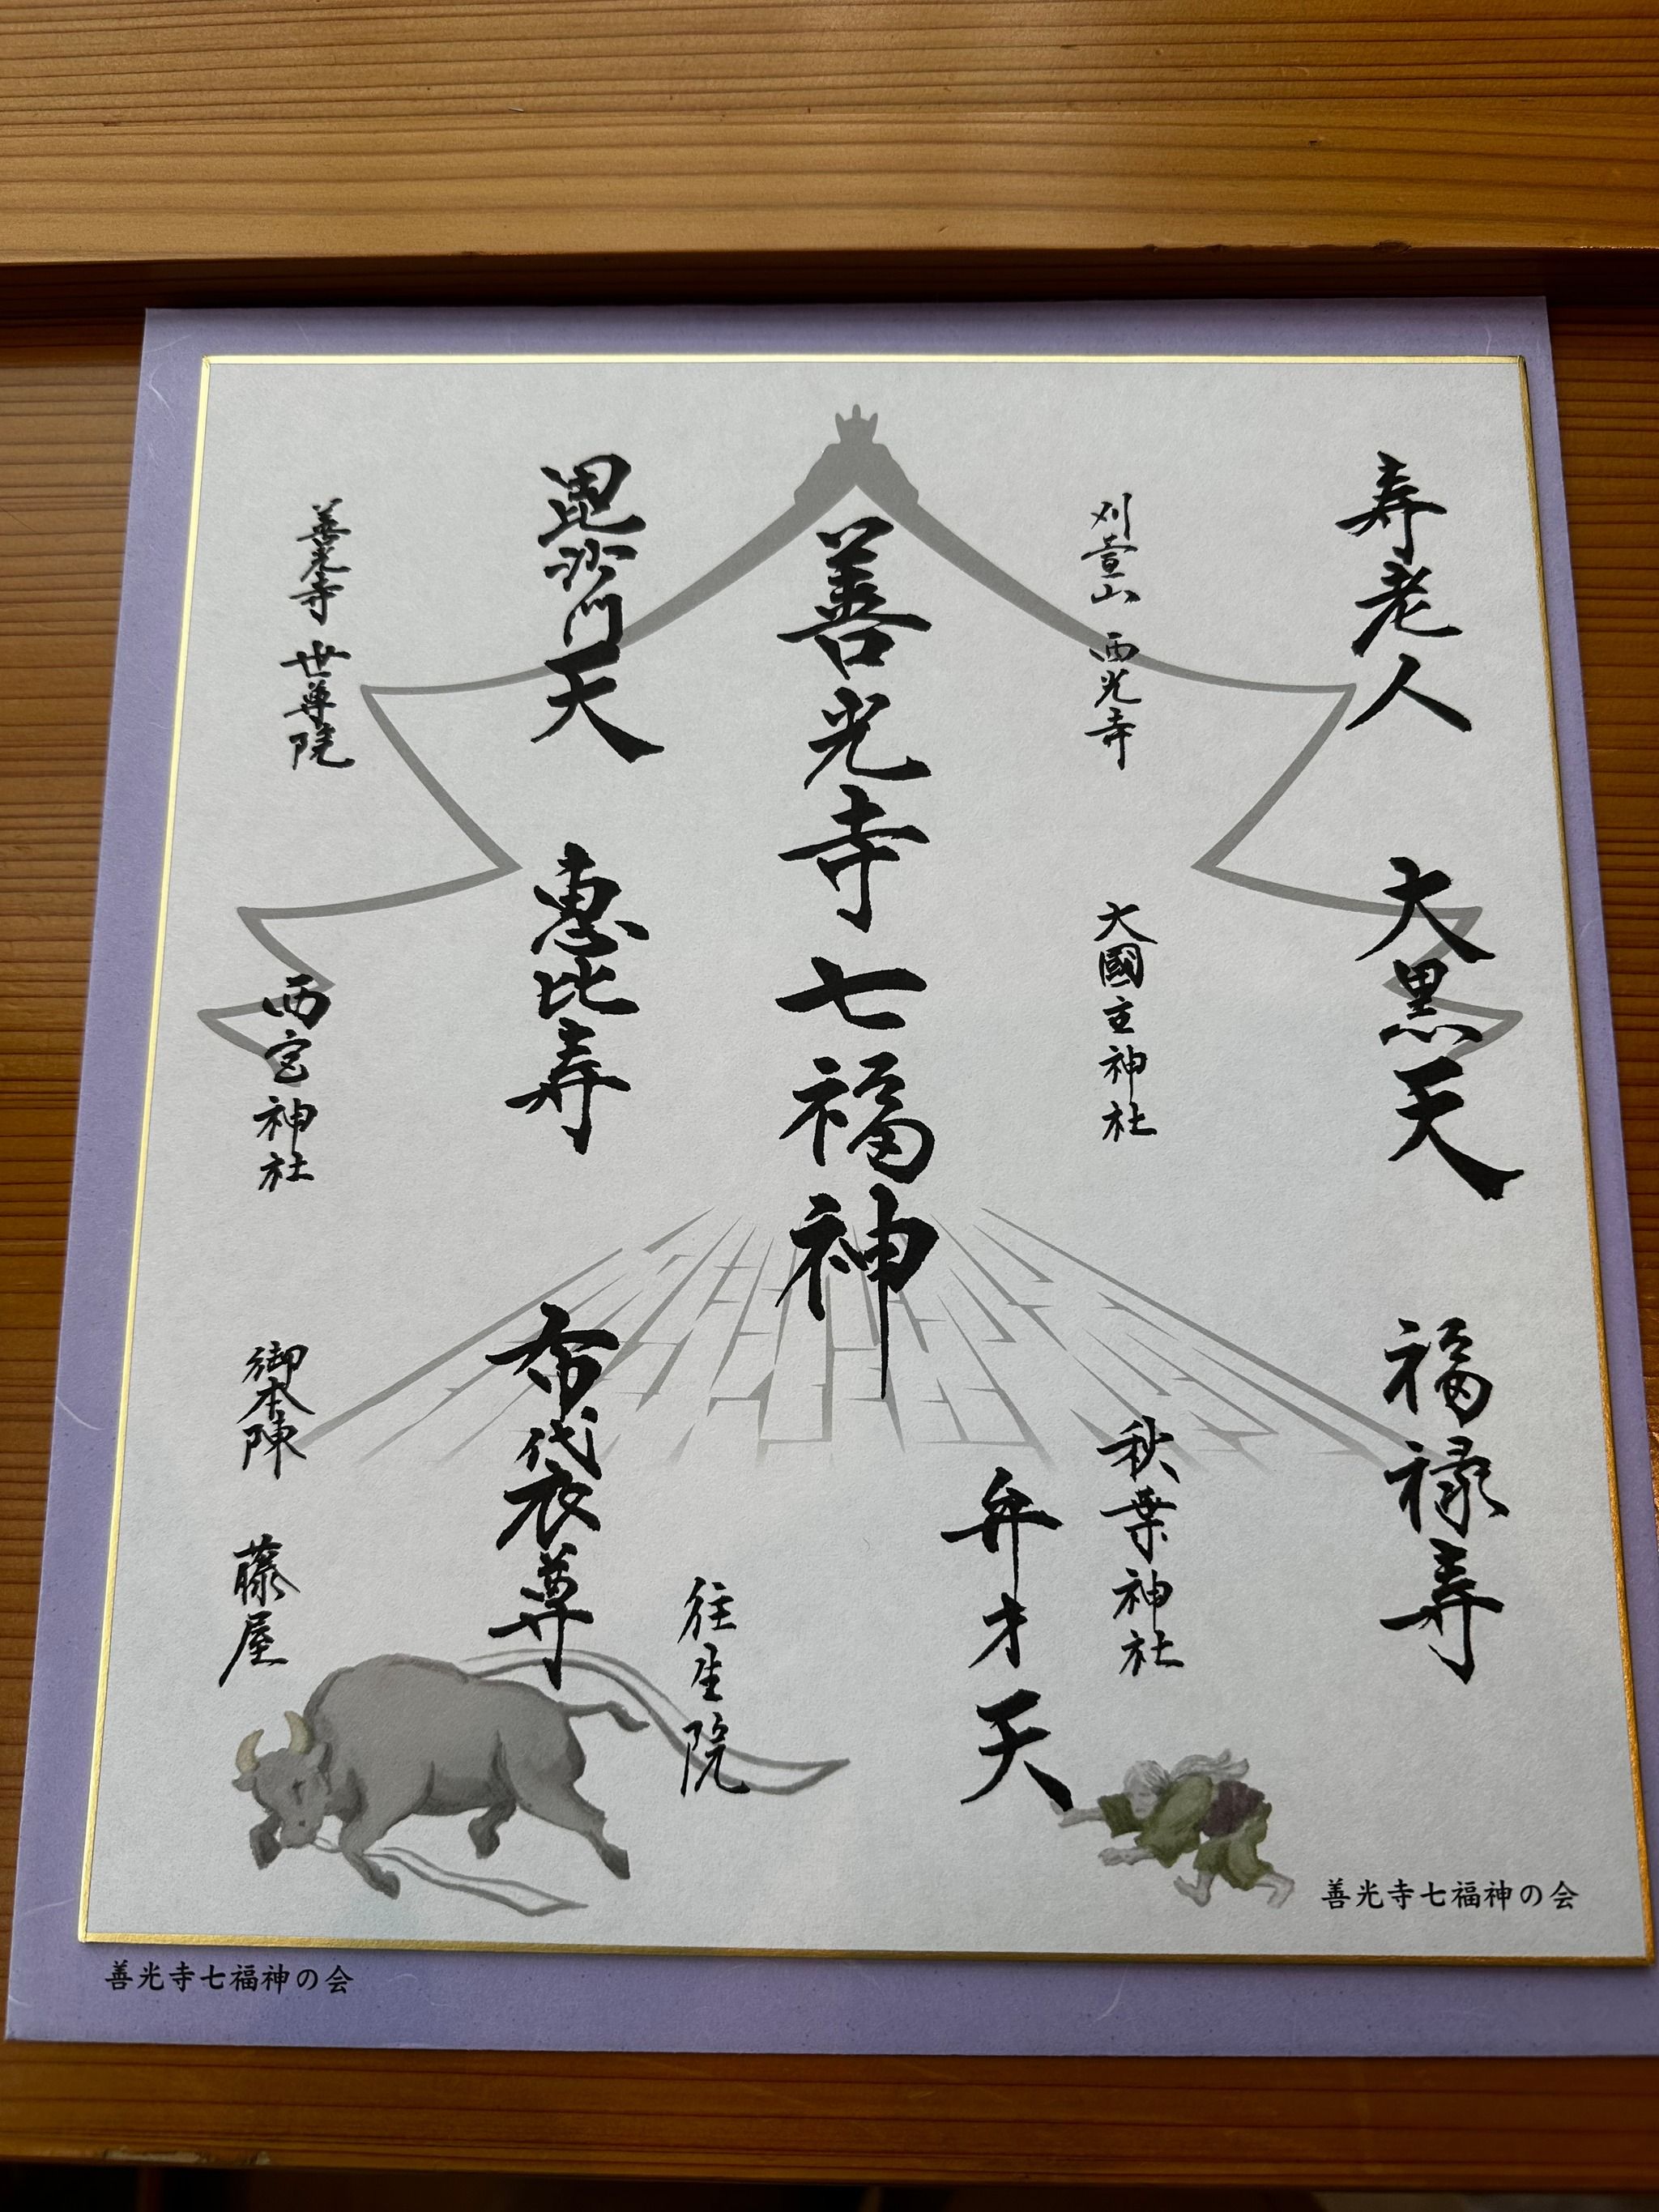 寿老人
刈萱山 西光寺
大黒天
大國主神社
福禄寿
秋葉神社
弁才天
善光寺七福神
往生院
毘沙門天
善光寺 世尊院
恵比寿
西宮神社
布袋尊
御本陳 藤屋
善光寺七福神の会
善光寺七福神の会